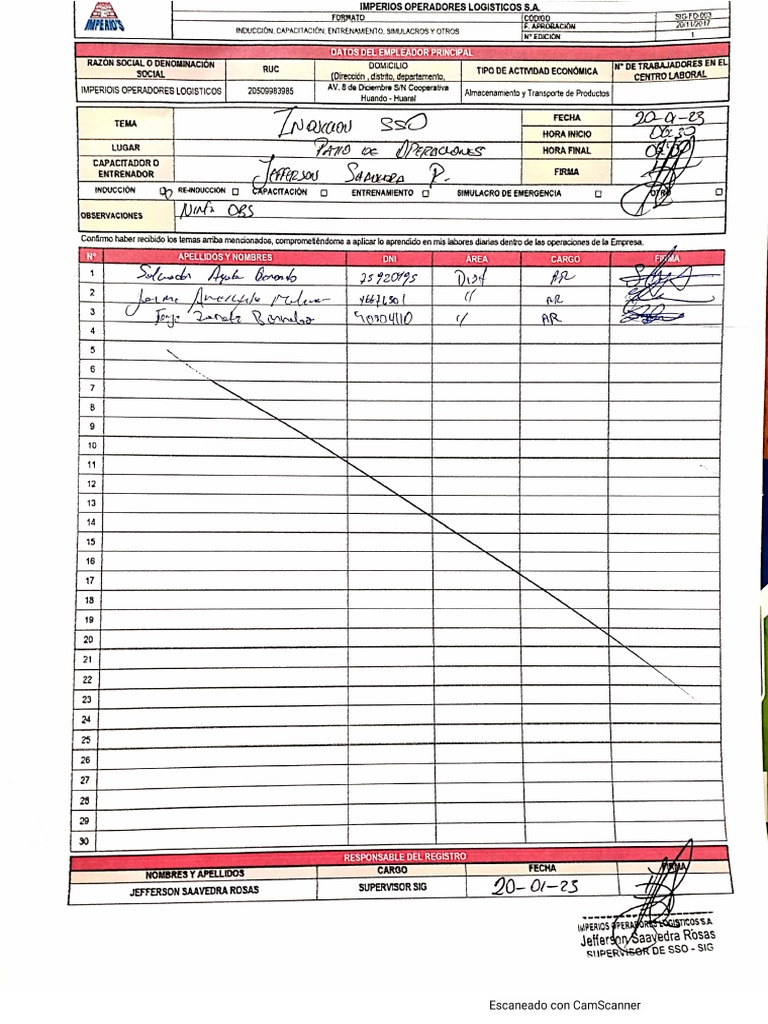 IMPERIO'S
IMPERIOS OPERADORES LOGISTICOS S.A.
FORMATO
CÓDIGO
SIG-FO-003
INDUCCIÓN, CAPACITACIÓN, ENTRENAMIENTO, SIMULACROS Y OTROS
F. APROBACIÓN
20/11/2017
N° EDICIÓN
1
DATOS DEL EMPLEADOR PRINCIPAL
RAZÓN SOCIAL O DENOMINACIÓN SOCIAL
RUC
DOMICILIO
(Dirección , distrito, departamento,
TIPO DE ACTIVIDAD ECONÓMICA
N° DE TRABAJADORES EN EL CENTRO LABORAL
IMPERIOIS OPERADORES LOGISTICOS
20509983985
AV. 8 de Diciembre S/N Cooperativa
Huando - Huaral
Almacenamiento y Transporte de Productos
TEMA
INDUCCION SSO
FECHA
20-01-23
HORA INICIO
06:30
LUGAR
PATIO DE OPERACIONES
HORA FINAL
CAPACITADOR O ENTRENADOR
JEFFERSON SAAVEDRA R.
FIRMA
INDUCCIÓN
RE-INDUCCION
CAPACITACIÓN
ENTRENAMIENTO
SIMULACRO DE EMERGENCIA
OTRO
OBSERVACIONES
OBS
Confirmo haber recibido los temas arriba mencionados, comprometiéndome a aplicar lo aprendido en mis labores diarias dentro de las operaciones de la Empresa.
N° APELLIDOS Y NOMBRES DNI ÁREA CARGO FIRMA
1 Salvador Ayala 25920495 Dist AR
2 Jaime 46676501 " AR
3 Zarate 40304110 " AR
4
5
6
7
8
9
10
11
12
13
14
15
16
17
18
19
20
21
22
23
24
25
26
27
28
29
30
RESPONSABLE DEL REGISTRO
NOMBRES Y APELLIDOS CARGO FECHA FIRMA
JEFFERSON SAAVEDRA ROSAS SUPERVISOR SIG 20-01-23
IMPERIOS OPERADORES LOGISTICOS S.A.
Jefferson Saavedra Rosas
SUPERVISOR DE SSO - SIG
Escaneado con CamScanner